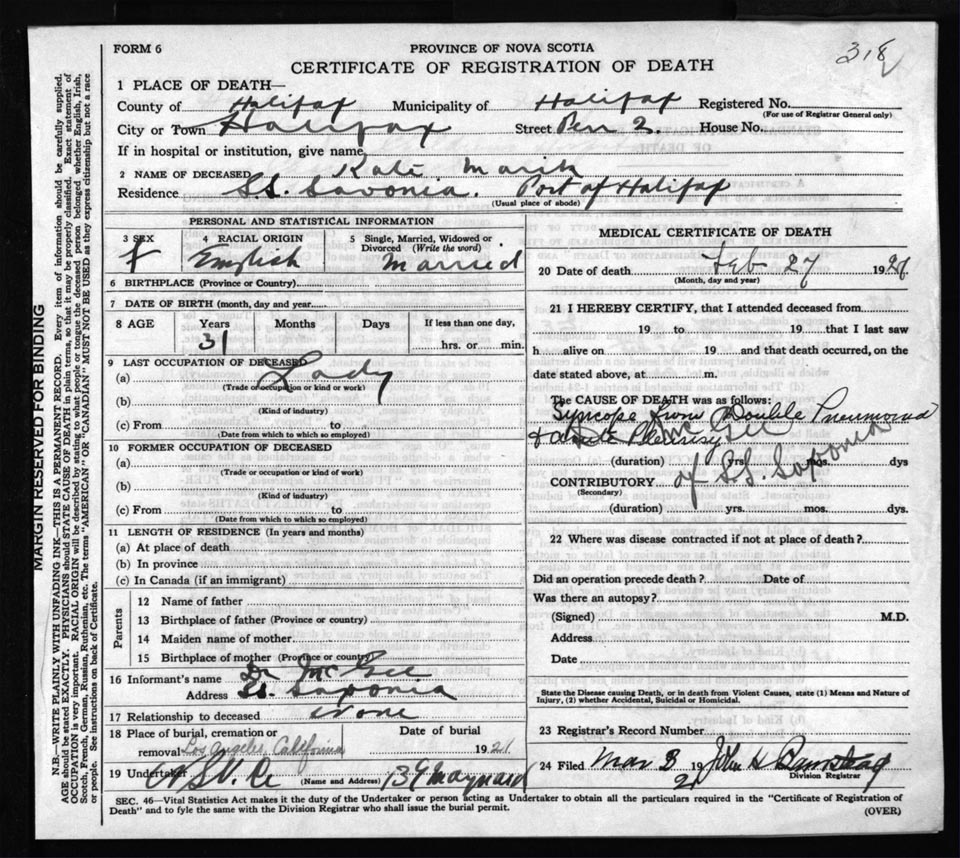 FORM 6
PROVINCE OF NOVA SCOTIA
318
CERTIFICATE OF REGISTRATION OF DEATH
1 PLACE OF DEATH—
County of Halifax Municipality of Halifax Registered No.
(For use of Registrar General only)
City or Town Halifax Street Pier 2 House No.
If in hospital or institution, give name
2 NAME OF DECEASED Kate
Residence S.S. Saxonia. Port of Halifax
(Usual place of abode)
PERSONAL AND STATISTICAL INFORMATION
3 SEX f
4 RACIAL ORIGIN English
5 Single, Married, Widowed or Divorced (Write the word) Married
6 BIRTHPLACE (Province or County)
7 DATE OF BIRTH (month, day and year)
8 AGE Years 31 Months Days If less than one day, hrs. or min.
9 LAST OCCUPATION OF DECEASED
(a) Lady
(Trade or occupation or kind or work)
(b)
(Kind of industry)
(c) From to
(Date from which to which so employed)
10 FORMER OCCUPATION OF DECEASED
(a)
(Trade or occupation or kind or work)
(b)
(Kind of industry)
(c) From to
(Date from which to which so employed)
11 LENGTH OF RESIDENCE (In years and months)
(a) At place of death
(b) In province
(c) In Canada (if an immigrant)
Parents
12 Name of father
13 Birthplace of father (Province or country)
14 Maiden name of mother
15 Birthplace of mother (Province or country)
16 Informant's name Dr
Address S.S. Saxonia
17 Relationship to deceased none
18 Place of burial, cremation or removal Los Angeles, California Date of burial 1921
19 Undertaker (Name and Address) Maynard
MEDICAL CERTIFICATE OF DEATH
20 Date of death Feb 27 192
(Month, day and year)
21 I HEREBY CERTIFY, that I attended deceased from
19 to 19 that I last saw
h alive on 19 and that death occurred, on the
date stated above, at m.
The CAUSE OF DEATH was as follows:
Syncope from Double Pneumonia
& Acute Pleurisy
(duration) yrs. mos. dys
of S.S. Saxonia
CONTRIBUTORY
(Secondary)
(duration) yrs. mos. dys.
22 Where was disease contracted if not at place of death?
Did an operation precede death? Date of
Was there an autopsy?
(Signed) M.D.
Address
Date
State the Disease causing Death, or in death from Violent Causes, state (1) Means and Nature of
Injury, (2) whether Accidental, Suicidal or Homicidal.
23 Registrar's Record Number
24 Filed Mar 2 19 21 John H
Division Registrar
SEC. 46—Vital Statistics Act makes it the duty of the Undertaker or person acting as Undertaker to obtain all the particulars required in the "Certificate of Registration of
Death" and to fyle the same with the Division Registrar who shall issue the burial permit.
(OVER)
MARGIN RESERVED FOR BINDING
N.B.—WRITE PLAINLY WITH UNFADING INK—THIS IS A PERMANENT RECORD. Every item of information should be carefully supplied.
AGE should be stated EXACTLY. PHYSICIANS should STATE CAUSE OF DEATH in plain terms, so that it may be properly classified. Exact statement of
OCCUPATION is very important. RACIAL ORIGIN will be described by stating to what people or tongue the deceased person belonged, whether English, Irish,
Scotch, French, German, Russian, Ruthenian, etc. The terms "AMERICAN" OR "CANADIAN" MUST NOT BE USED as they express citizenship but not a race
or people. See instructions on back of Certificate.